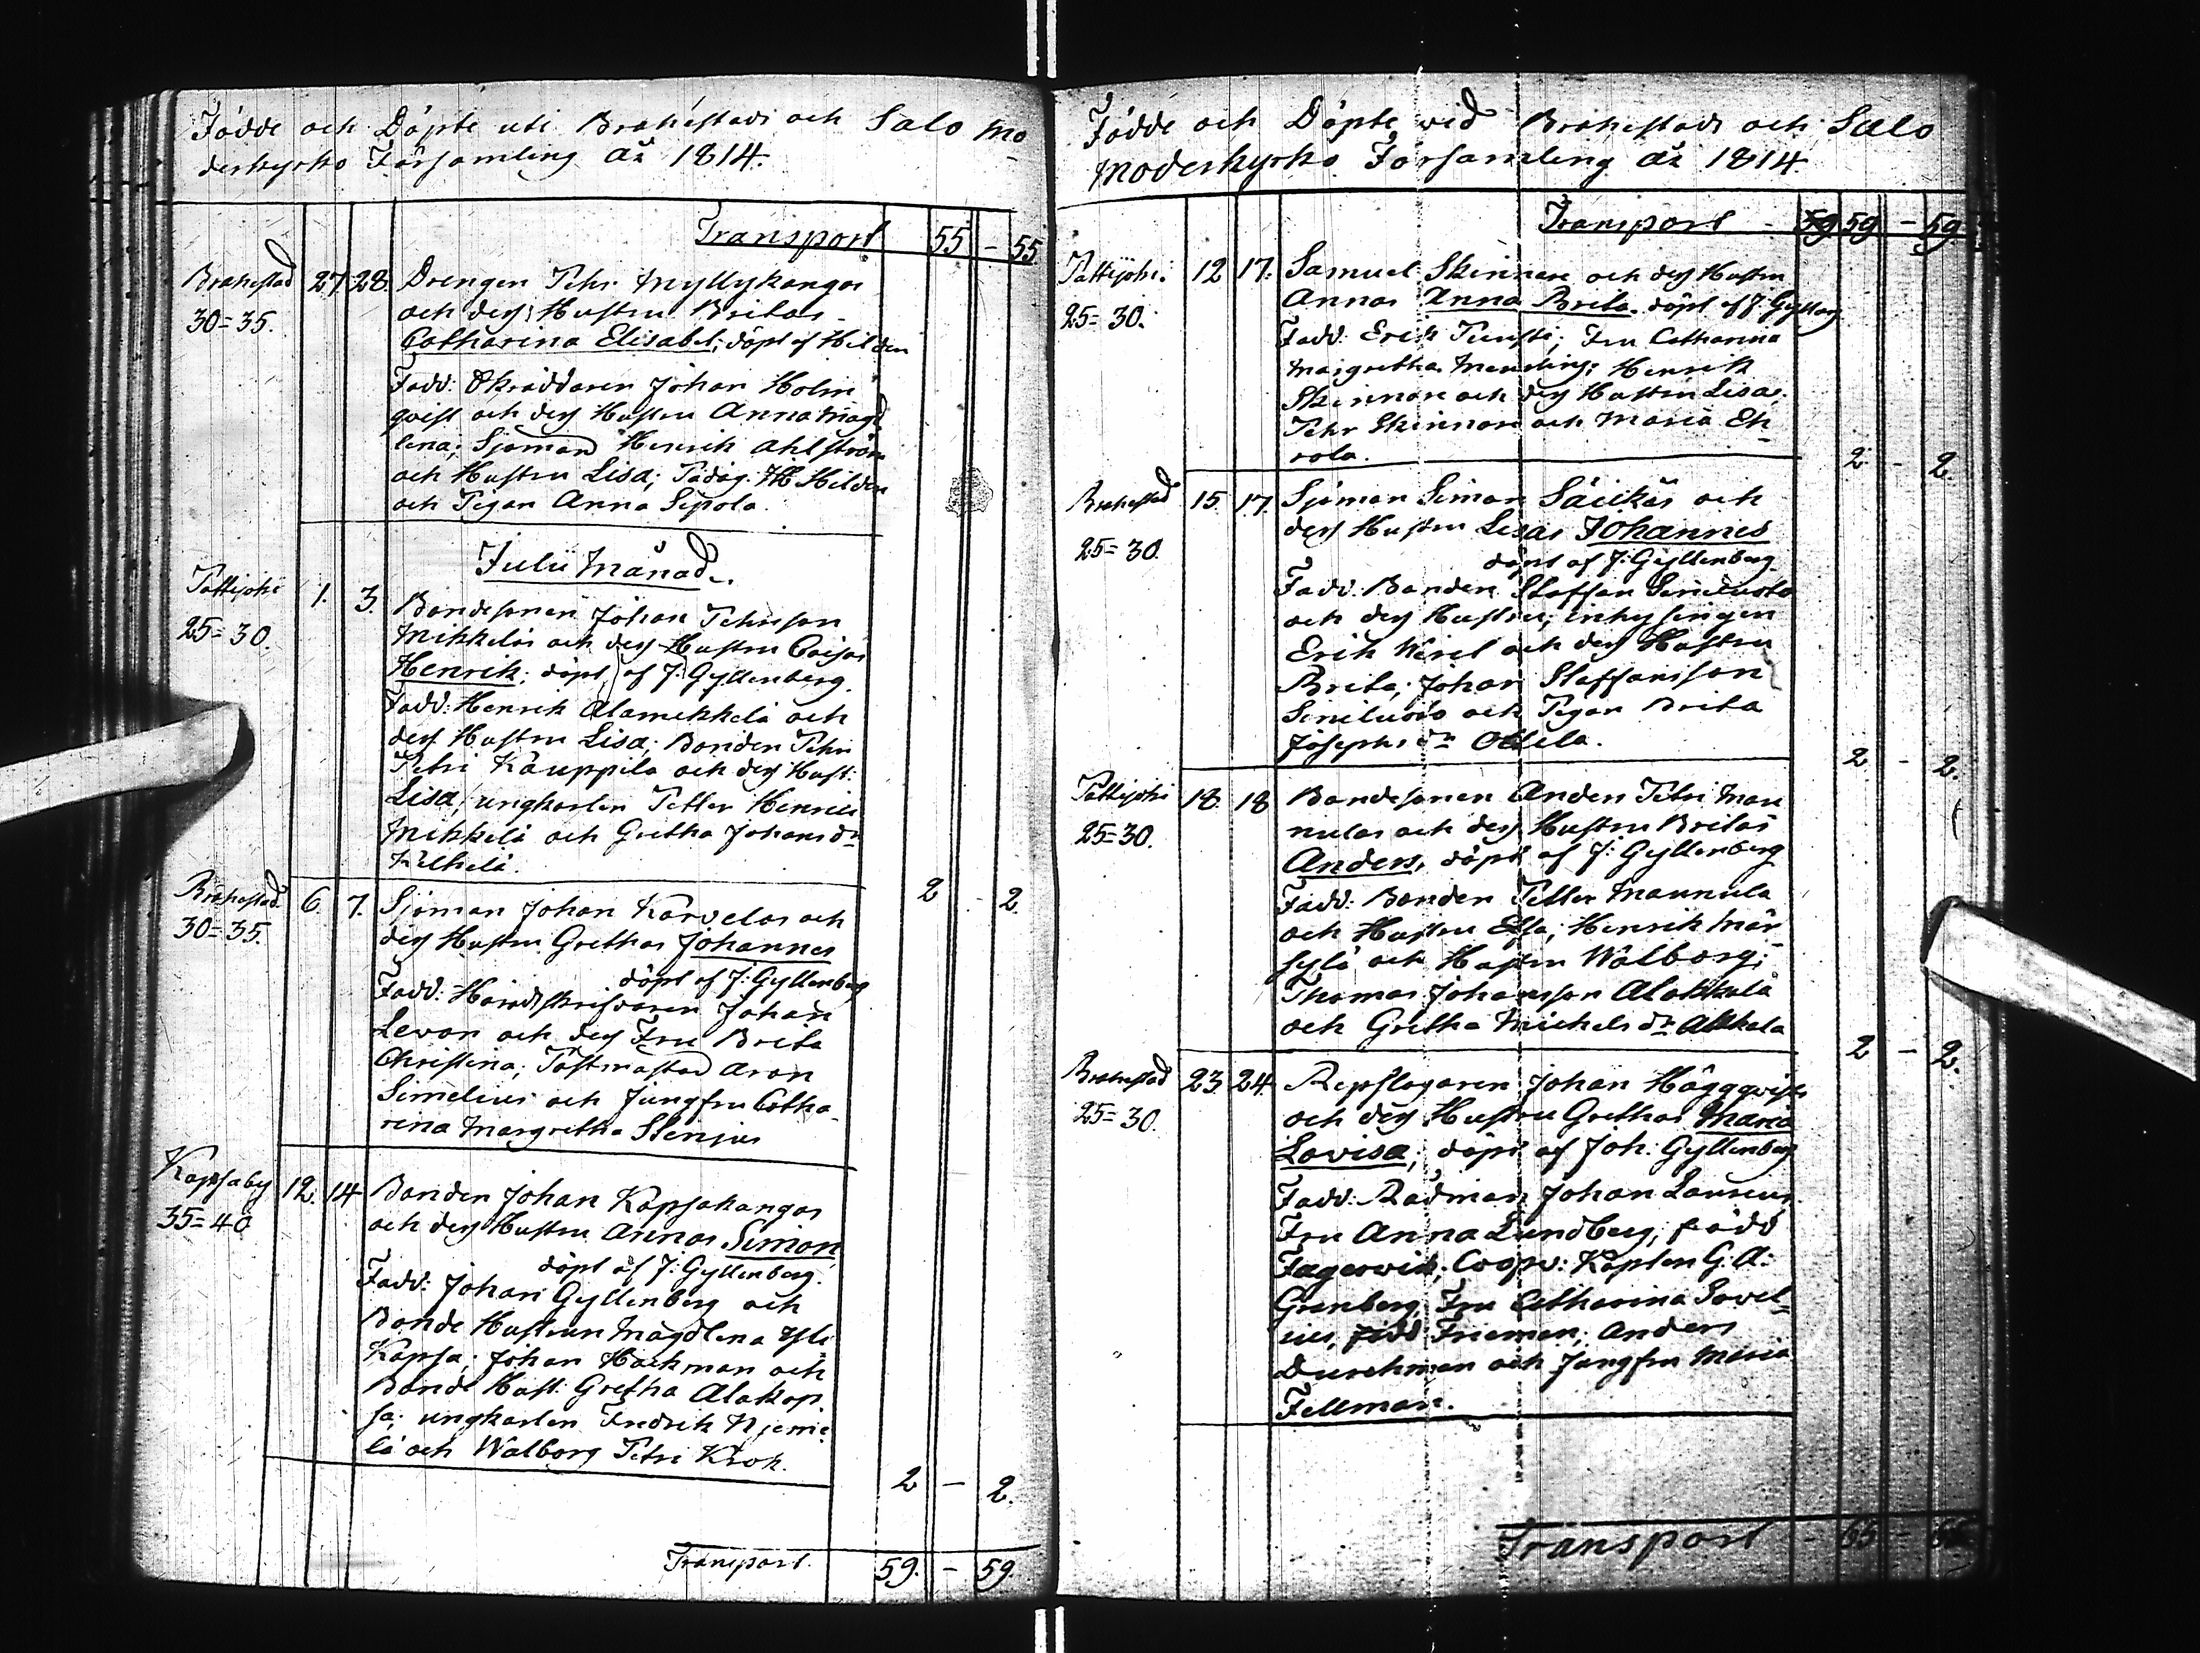 Födde och Döpte uti Brahestads och Salo mo
derkyrko Församling år 1814.
Transport 55 - 55
Brahestad 27. 28. Drengen Pehr Myllykangas
30=35. och dess Hustru Britas
Catharina Elisabet; döpt af Hilden
Fadd: Skräddaren Johan Holm
qvist och dess Hustru Anna Magd
lena; Sjöman Henrik Ahlström
och Hustru Lisa; Pädag. H Hilden
och Pigan Anna Sipola.
Julii Månad.
Pattijoki 1. 3. Bondesonen Johan Pehrsson
25=30. Mikkeläs och dess Hustru Caisas
Henrik; döpt af J: Gyllenberg.
Fadd: Henrik Alamikkelä och
dess Hustru Lisa; Bonden Pehr
Petri Kauppila och dess Hust:
Lisa; ungkarlen Petter Henrics
Mikkelä och Gretha Johans dr
2 - 2.
Brahestad 6. 7. Sjöman Johan Karvelas och
30=35. dess Hustru Grethas Johannes
döpt af J: Gyllenberg
Fadd: Häradsskrifvaren Johan
Levon och dess Fru Brita
Christina; Postmästar Aron
Simelius och Jungfru Catha
rina Margretha Stenius
Kopsaby 12. 14 Bonden Johan Kopsakangas
35=40 och dess Hustru Annas Simon
döpt af J: Gyllenberg.
Fadd: Johan Gyllenberg och
Bonde Hustrun Magdlena Yli
Kopsa; Johan Hackman och
Bonde Hust: Gretha Alakop
sa; ungkarlen Fredrik Njeme
lä och Walborg Petri Krok.
2 - 2.
Transport. 59. - 59.
Födde och Döpte wid Brahestads och Salo
Moderkyrko Församling år 1814.
Transport - 59 59 - 59
Pattijoki. 12 17. Samuel Skinnare och dess Hustru
25=30. Annas Anna Brita. döpt af J. Gyllberg
Fadd: Erik ; Fru Catharina
Margretha ; Henrik
Skinnare och dess Hustru Lisa.
Pehr Skinnare och Maria Eh
rola.
2 - 2.
Brahestad 15. 17. Sjöman Simon Säickäs och
25=30. dess Hustru Lisas Johannes
döpt af J: Gyllenberg
Fadd: Bonden Staffan Siniluoto
och dess Hustru; inhysingen
Erik och dess Hustru
Brita; Johan Staffansson
Siniluoto och Pigan Brita
Josephs dr Ollila.
2 - 2.
Pattijoki 18. 18 Bondesonen Anders Petri Man
25=30. nulas och dess Hustru Britas
Anders, döpt af J: Gyllenberg
Fadd: Bonden Petter Mannula
och Hustru Elsa; Henrik Mär
sylä och Hustru Walborg;
Thomas Johansson Alakkala
och Gretha Michels dr Alkkala
2 - 2.
Brahestad 23. 24. Repslagaren Johan Häggqvists
25=30. och dess Hustru Grethas Maria
Lovisa; döpt af Joh: Gyllenberg
Fadd: Rådman Johan Laurius
Fru Anna Lundberg, född
; Coopv: Kapten G: A:
Granberg, Fru Catharina Sovel=
ius, född Frieman; Anders
Durchman och Jungfru Maria
Fellman.
Transport - 65 -